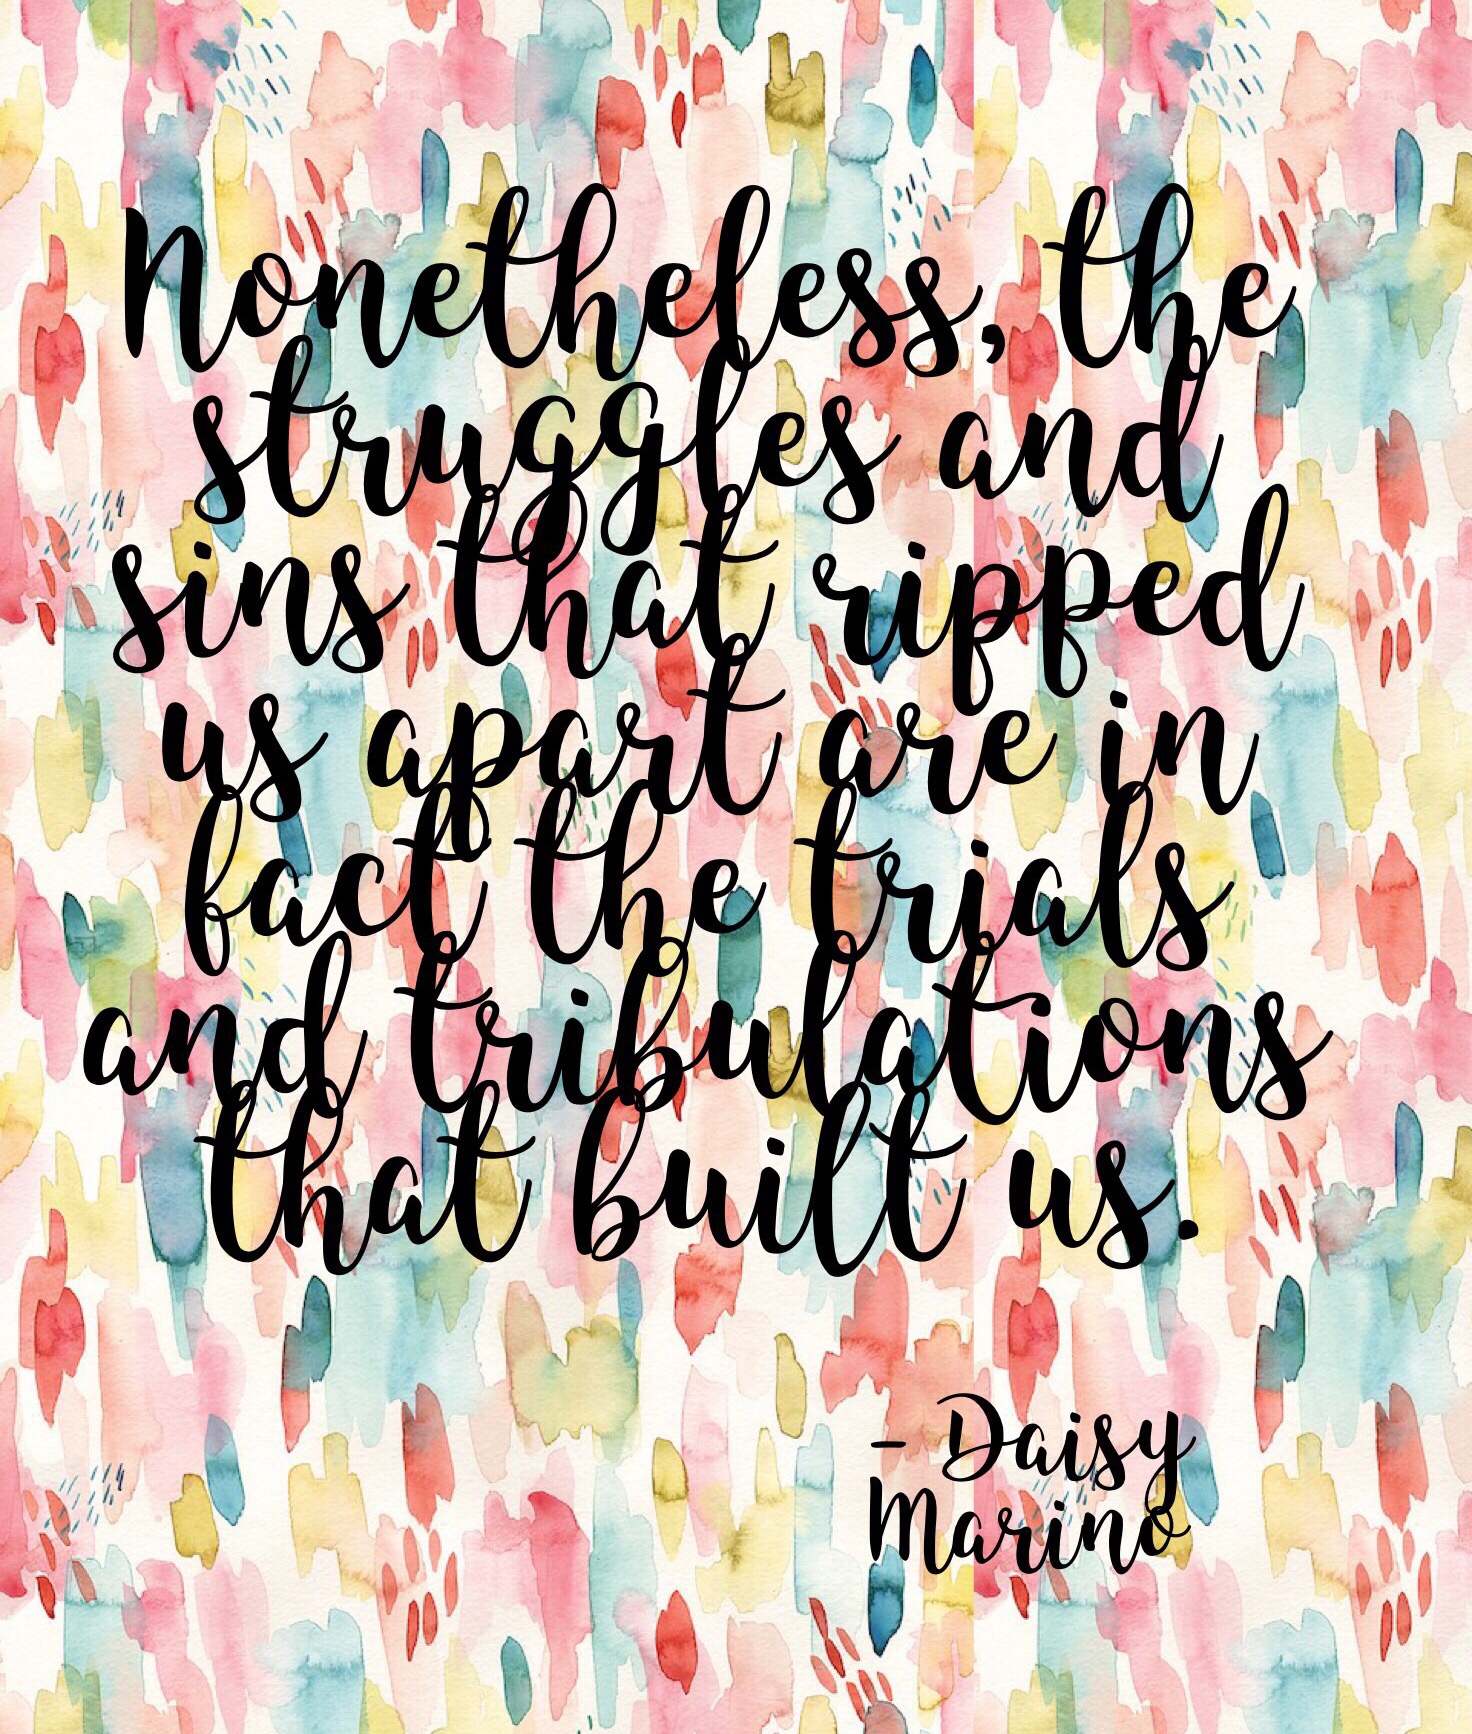 Nonetheless, the
struggles and
sins that ripped
us apart are in
fact the trials
and tribulations
that built us.
- Daisy
Marino